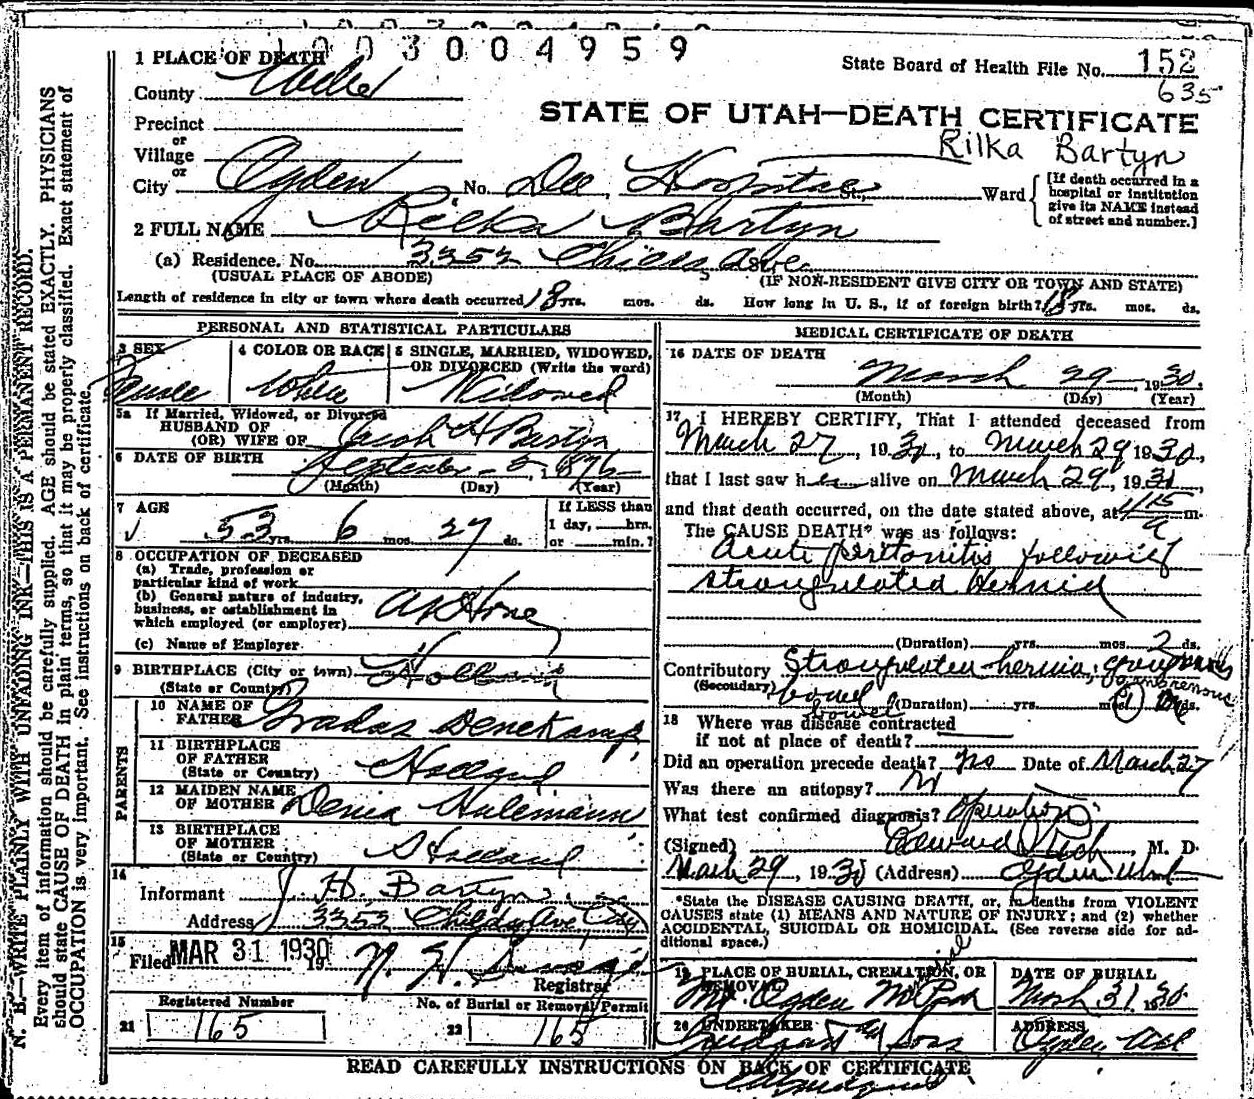 1003004959
1 PLACE OF DEATH
State Board of Health File No. 152
635
County Weber
STATE OF UTAH—DEATH CERTIFICATE
Precinct
or
Village
Rilka Bartyn
or
City Ogden No. Dee Hospital St., Ward
[If death occurred in a hospital or institution give its NAME instead of street and number.]
2 FULL NAME Rilka Bartyn
(a) Residence. No. 3352 Childs Ave
(USUAL PLACE OF ABODE) (IF NON-RESIDENT GIVE CITY OR TOWN AND STATE)
Length of residence in city or town where death occurred 18 yrs. mos. ds. How long in U. S., if of foreign birth? 18 yrs. mos. ds.
PERSONAL AND STATISTICAL PARTICULARS
3 SEX 4 COLOR OR RACE 5 SINGLE, MARRIED, WIDOWED, OR DIVORCED (Write the word)
Female White Widowed
5a If Married, Widowed, or Divorced
HUSBAND OF
(OR) WIFE OF Jacob H Bartyn
6 DATE OF BIRTH September 5 1876
(Month) (Day) (Year)
7 AGE If LESS than
53 yrs. 6 mos. 27 ds. 1 day, hrs.
or min.?
8 OCCUPATION OF DECEASED
(a) Trade, profession or
particular kind of work
(b) General nature of industry,
business, or establishment in
which employed (or employer) At Home
(c) Name of Employer
9 BIRTHPLACE (City or town) Holland
(State or Country)
PARENTS
10 NAME OF
FATHER Gradas Denekamp
11 BIRTHPLACE
OF FATHER
(State or Country) Holland
12 MAIDEN NAME
OF MOTHER Denia Hulemann
13 BIRTHPLACE
OF MOTHER
(State or Country) Holland
14
Informant J. H. Bartyn
Address 3352 Childs Ave City
15
Filed MAR 31 1930 19
Registrar
Registered Number No. of Burial or Removal Permit
21 165 22 165
MEDICAL CERTIFICATE OF DEATH
16 DATE OF DEATH
March 29 1930.
(Month) (Day) (Year)
17 I HEREBY CERTIFY, That I attended deceased from
March 27, 1930, to March 29 1930,
that I last saw her alive on March 29, 1930,
and that death occurred, on the date stated above, at 115 a m.
The CAUSE DEATH* was as follows:
Acute peritonitis following
strangulated Hernia
(Duration) yrs. mos. 2 ds.
Contributory Strangulated hernia, gangrenous
(Secondary) bowel gangrenous
bowel (Duration) yrs. mos. ds.
18 Where was disease contracted
if not at place of death?
Did an operation precede death? yes Date of March 27
Was there an autopsy? No
What test confirmed diagnosis? Operation
(Signed) Edward Rich, M. D.
March 29, 1930 (Address) Ogden Utah
*State the DISEASE CAUSING DEATH, or, in deaths from VIOLENT
CAUSES state (1) MEANS AND NATURE OF INJURY; and (2) whether
ACCIDENTAL, SUICIDAL OR HOMICIDAL. (See reverse side for ad-
ditional space.)
19 PLACE OF BURIAL, CREMATION, OR REMOVAL DATE OF BURIAL
Mt Ogden M Park March 31 1930
20 UNDERTAKER ADDRESS
Lindquist & Sons Ogden Utah
READ CAREFULLY INSTRUCTIONS ON BACK OF CERTIFICATE
N. B.—WRITE PLAINLY WITH UNFADING INK—THIS IS A PERMANENT RECORD.
Every item of information should be carefully supplied. AGE should be stated EXACTLY. PHYSICIANS
should state CAUSE OF DEATH in plain terms, so that it may be properly classified. Exact statement of
OCCUPATION is very important. See instructions on back of certificate.